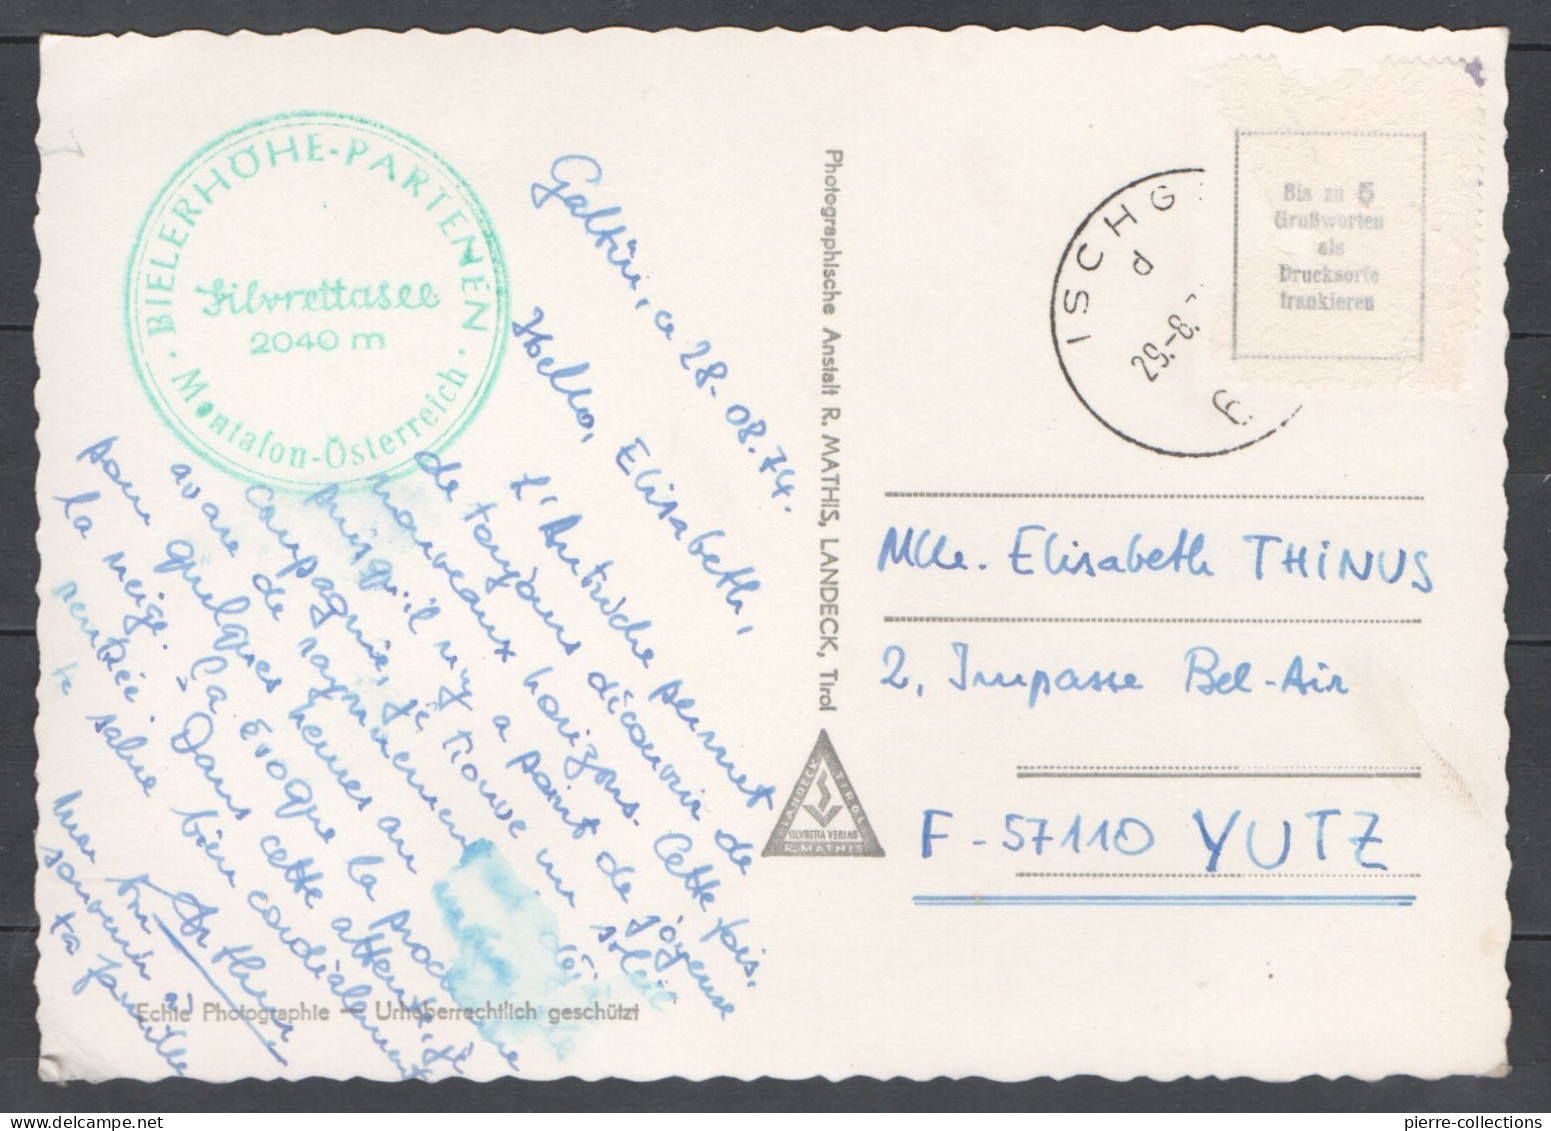 BIELERHÖHE-PARTENEN
Silvrettasee
2040 m
· Montafon-Österreich ·
Galtür, ce 28-08.74.
Hello, Elisabeth,
L'Autriche permet
de toujours découvrir de
nouveaux horizons. Cette fois,
puisqu'il n'y a point de joyeuse
compagnie, je trouve un soleil
avare de rayonnement
pour quelques heures au
la neige. Ça évoque la prochaine
rentrée. Dans cette attente, je
te salue bien cordialement
Arthur
Mon
souvenir à
ta famille
Echte Photographie — Urheberrechtlich geschützt
Photographische Anstalt R. MATHIS, LANDECK, Tirol
LANDECK TIROL
SILVRETTA VERLAG
R. MATHIS
ISCHG
d
29.-8.
Bis zu 5
Grußworten
als
Drucksorte
frankieren
Mlle. Elisabeth THINUS
2, Impasse Bel-Air
F-57110 YUTZ
pierre-collections